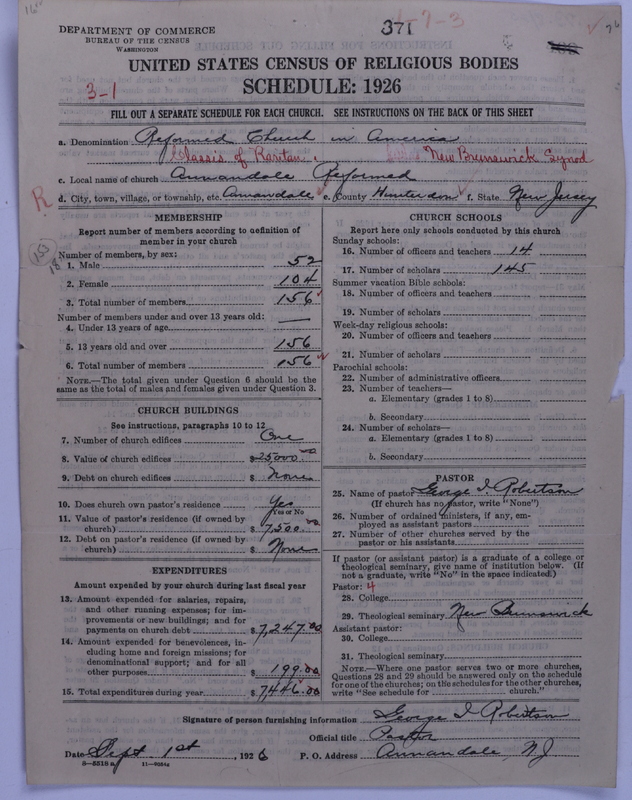 371
1-7-3
DEPARTMENT OF COMMERCE
BUREAU OF THE CENSUS
WASHINGTON
UNITED STATES CENSUS OF RELIGIOUS BODIES
SCHEDULE: 1926
3-1
FILL OUT A SEPARATE SCHEDULE FOR EACH CHURCH. SEE INSTRUCTIONS ON THE BACK OF THIS SHEET
a. Denomination Reformed Church in America
Classis of Raritan. New Brunswick Synod
c. Local name of church Annandale Reformed
R d. City, town, village, or township, etc. Annandale e. County Hunterdon f. State New Jersey
MEMBERSHIP
Report number of members according to definition of
member in your church
153
Number of members, by sex:
1. Male 52
2. Female 104
3. Total number of members 156
Number of members under and over 13 years old:
4. Under 13 years of age —
5. 13 years old and over 156
6. Total number of members 156
NOTE.—The total given under Question 6 should be the
same as the total of males and females given under Question 3.
CHURCH BUILDINGS
See instructions, paragraphs 10 to 12
7. Number of church edifices One
8. Value of church edifices $25000.00
9. Debt on church edifices $ None
10. Does church own pastor's residence Yes
Yes or No
11. Value of pastor's residence (if owned by
church) $7,500.00
12. Debt on pastor's residence (if owned by
church) $ None
EXPENDITURES
Amount expended by your church during last fiscal year
13. Amount expended for salaries, repairs,
and other running expenses; for im-
provements or new buildings; and for
payments on church debt $7,247.00
14. Amount expended for benevolences, in-
cluding home and foreign missions; for
denominational support; and for all
other purposes $199.00
15. Total expenditures during year $7,446.00
CHURCH SCHOOLS
Report here only schools conducted by this church
Sunday schools:
16. Number of officers and teachers 14
17. Number of scholars 145
Summer vacation Bible schools:
18. Number of officers and teachers
19. Number of scholars
Week-day religious schools:
20. Number of officers and teachers
21. Number of scholars
Parochial schools:
22. Number of administrative officers
23. Number of teachers—
a. Elementary (grades 1 to 8)
b. Secondary
24. Number of scholars—
a. Elementary (grades 1 to 8)
b. Secondary
PASTOR
25. Name of pastor George I. Robertson
(If church has no pastor, write "None")
26. Number of ordained ministers, if any, em-
ployed as assistant pastors
27. Number of other churches served by the
pastor or his assistants
If pastor (or assistant pastor) is a graduate of a college or
theological seminary, give name of institution below. (If
not a graduate, write "No" in the space indicated.)
Pastor: 4
28. College
29. Theological seminary New Brunswick
Assistant pastor:
30. College
31. Theological seminary
NOTE.—Where one pastor serves two or more churches,
Questions 28 and 29 should be answered only on the schedule
for one of the churches; on the schedules for the other churches,
write "See schedule for church."
Signature of person furnishing information George I. Robertson
Official title Pastor
Date Sept. 1st, 1926 P. O. Address Annandale, NJ
8-5518 a